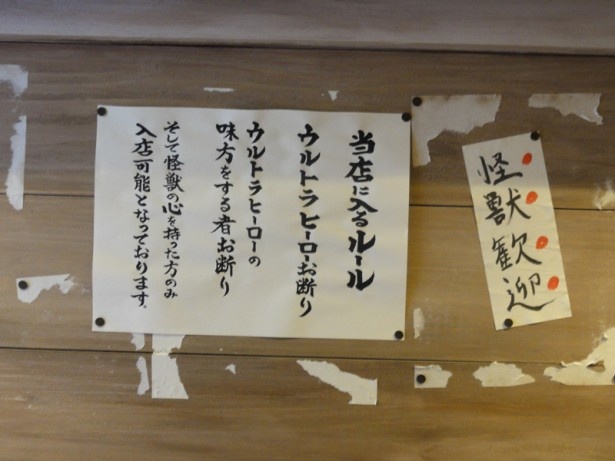 当店に入るルール
ウルトラヒーローお断り
ウルトラヒーローの
味方をする者お断り
そして怪獣の心を持った方のみ
入店可能となっております。
怪獣歓迎